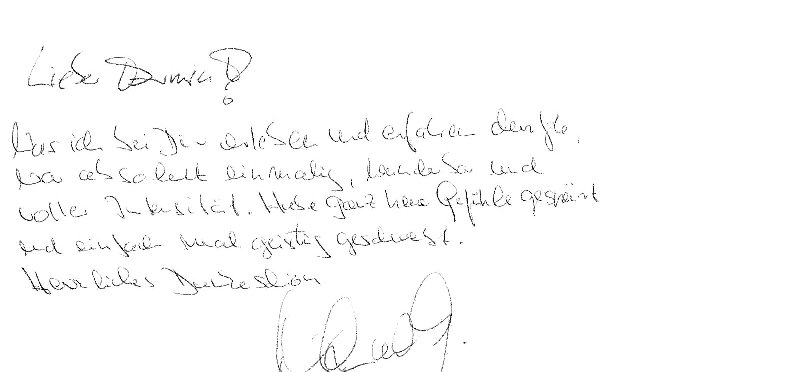 Lieber Darwin!
Was ich bei Dir erleben und erfahren durfte,
war absolut einmalig, wunderbar und
voller Intensität. Habe ganz neue Gefühle gespürt
und einfach mal geistig geschwebt.
Herzliches Dankeschön